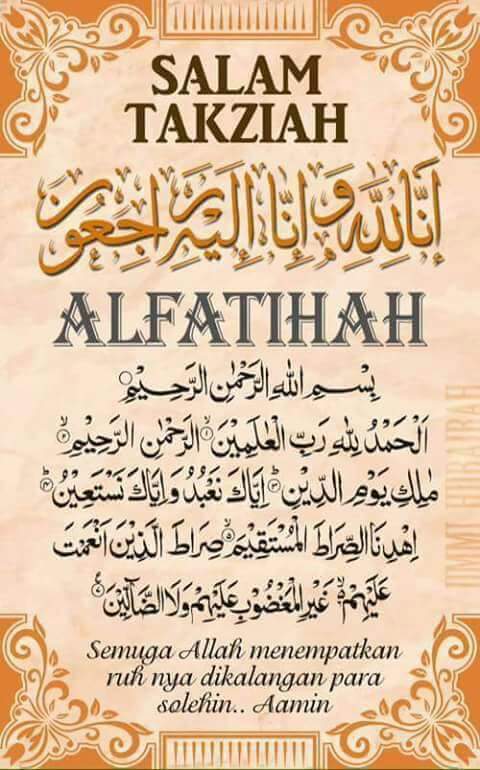 SALAM
TAKZIAH
اِنَّا لِلّٰهِ وَاِنَّا اِلَيْهِ رَاجِعُوْنَ
ALFATIHAH
بِسْمِ اللهِ الرَّحْمٰنِ الرَّحِيْمِ
اَلْحَمْدُ لِلّٰهِ رَبِّ الْعٰلَمِيْنَ ۙ١ الرَّحْمٰنِ الرَّحِيْمِ ۙ٢
مٰلِكِ يَوْمِ الدِّيْنِ ۗ٣ اِيَّاكَ نَعْبُدُ وَاِيَّاكَ نَسْتَعِيْنُ ۗ٤
اِهْدِنَا الصِّرَاطَ الْمُسْتَقِيْمَ ۙ٥ صِرَاطَ الَّذِيْنَ اَنْعَمْتَ
عَلَيْهِمْ ۙ غَيْرِ الْمَغْضُوْبِ عَلَيْهِمْ وَلَا الضَّآلِّيْنَ ۚ٦
Semuga Allah menempatkan
ruh nya dikalangan para
solehin.. Aamin
UMMI HURAIRAH